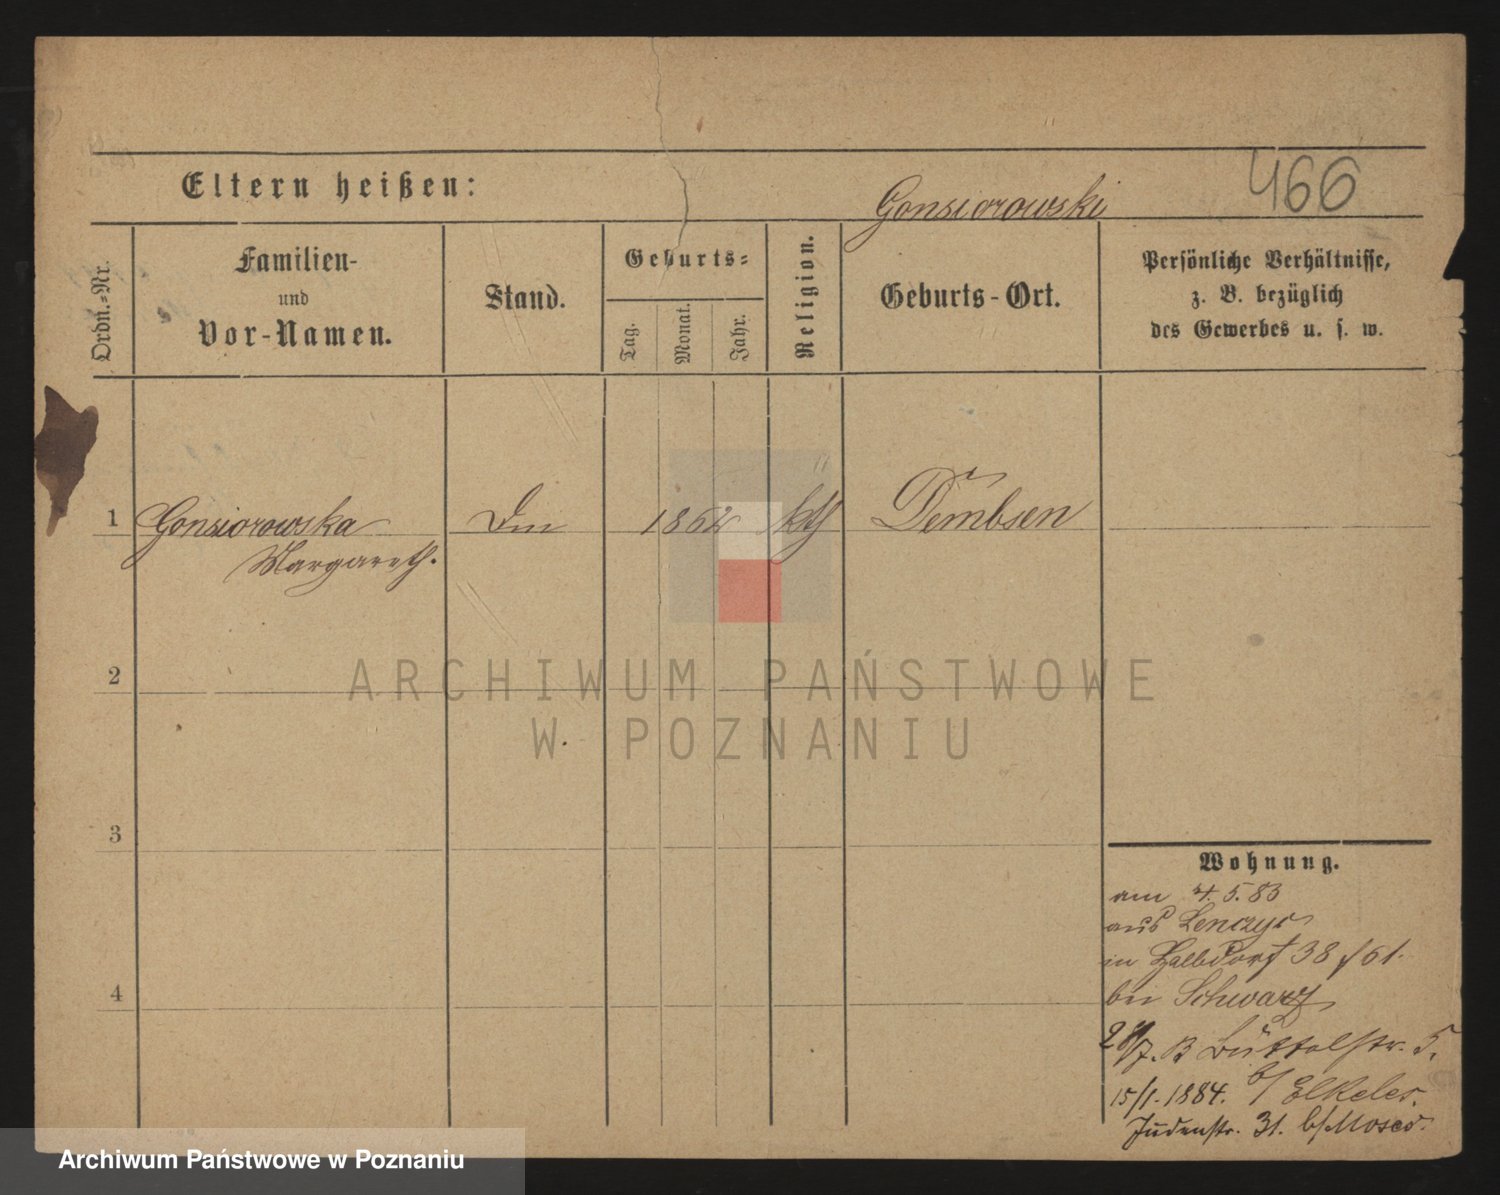 466
Eltern heißen:
Gonsiorowski
Ordn.=Nr.
Familien-
und
Vor-Namen.
Stand.
Geburts=
Tag.
Monat.
Jahr.
Religion.
Geburts-Ort.
Persönliche Verhältnisse,
z. B. bezüglich
des Gewerbes u. s. w.
1 Gonsiorowska 1862 kth Dembsen
Margareth.
2
3
4
Wohnung.
am 4.5.83
aus
in Halbdorf 38
bei Schwarz
Büttelstr. 5.
15/1.1884. b/ Elkeles.
Judenstr. 31. b/Moses.
ARCHIWUM PAŃSTWOWE
W POZNANIU
Archiwum Państwowe w Poznaniu